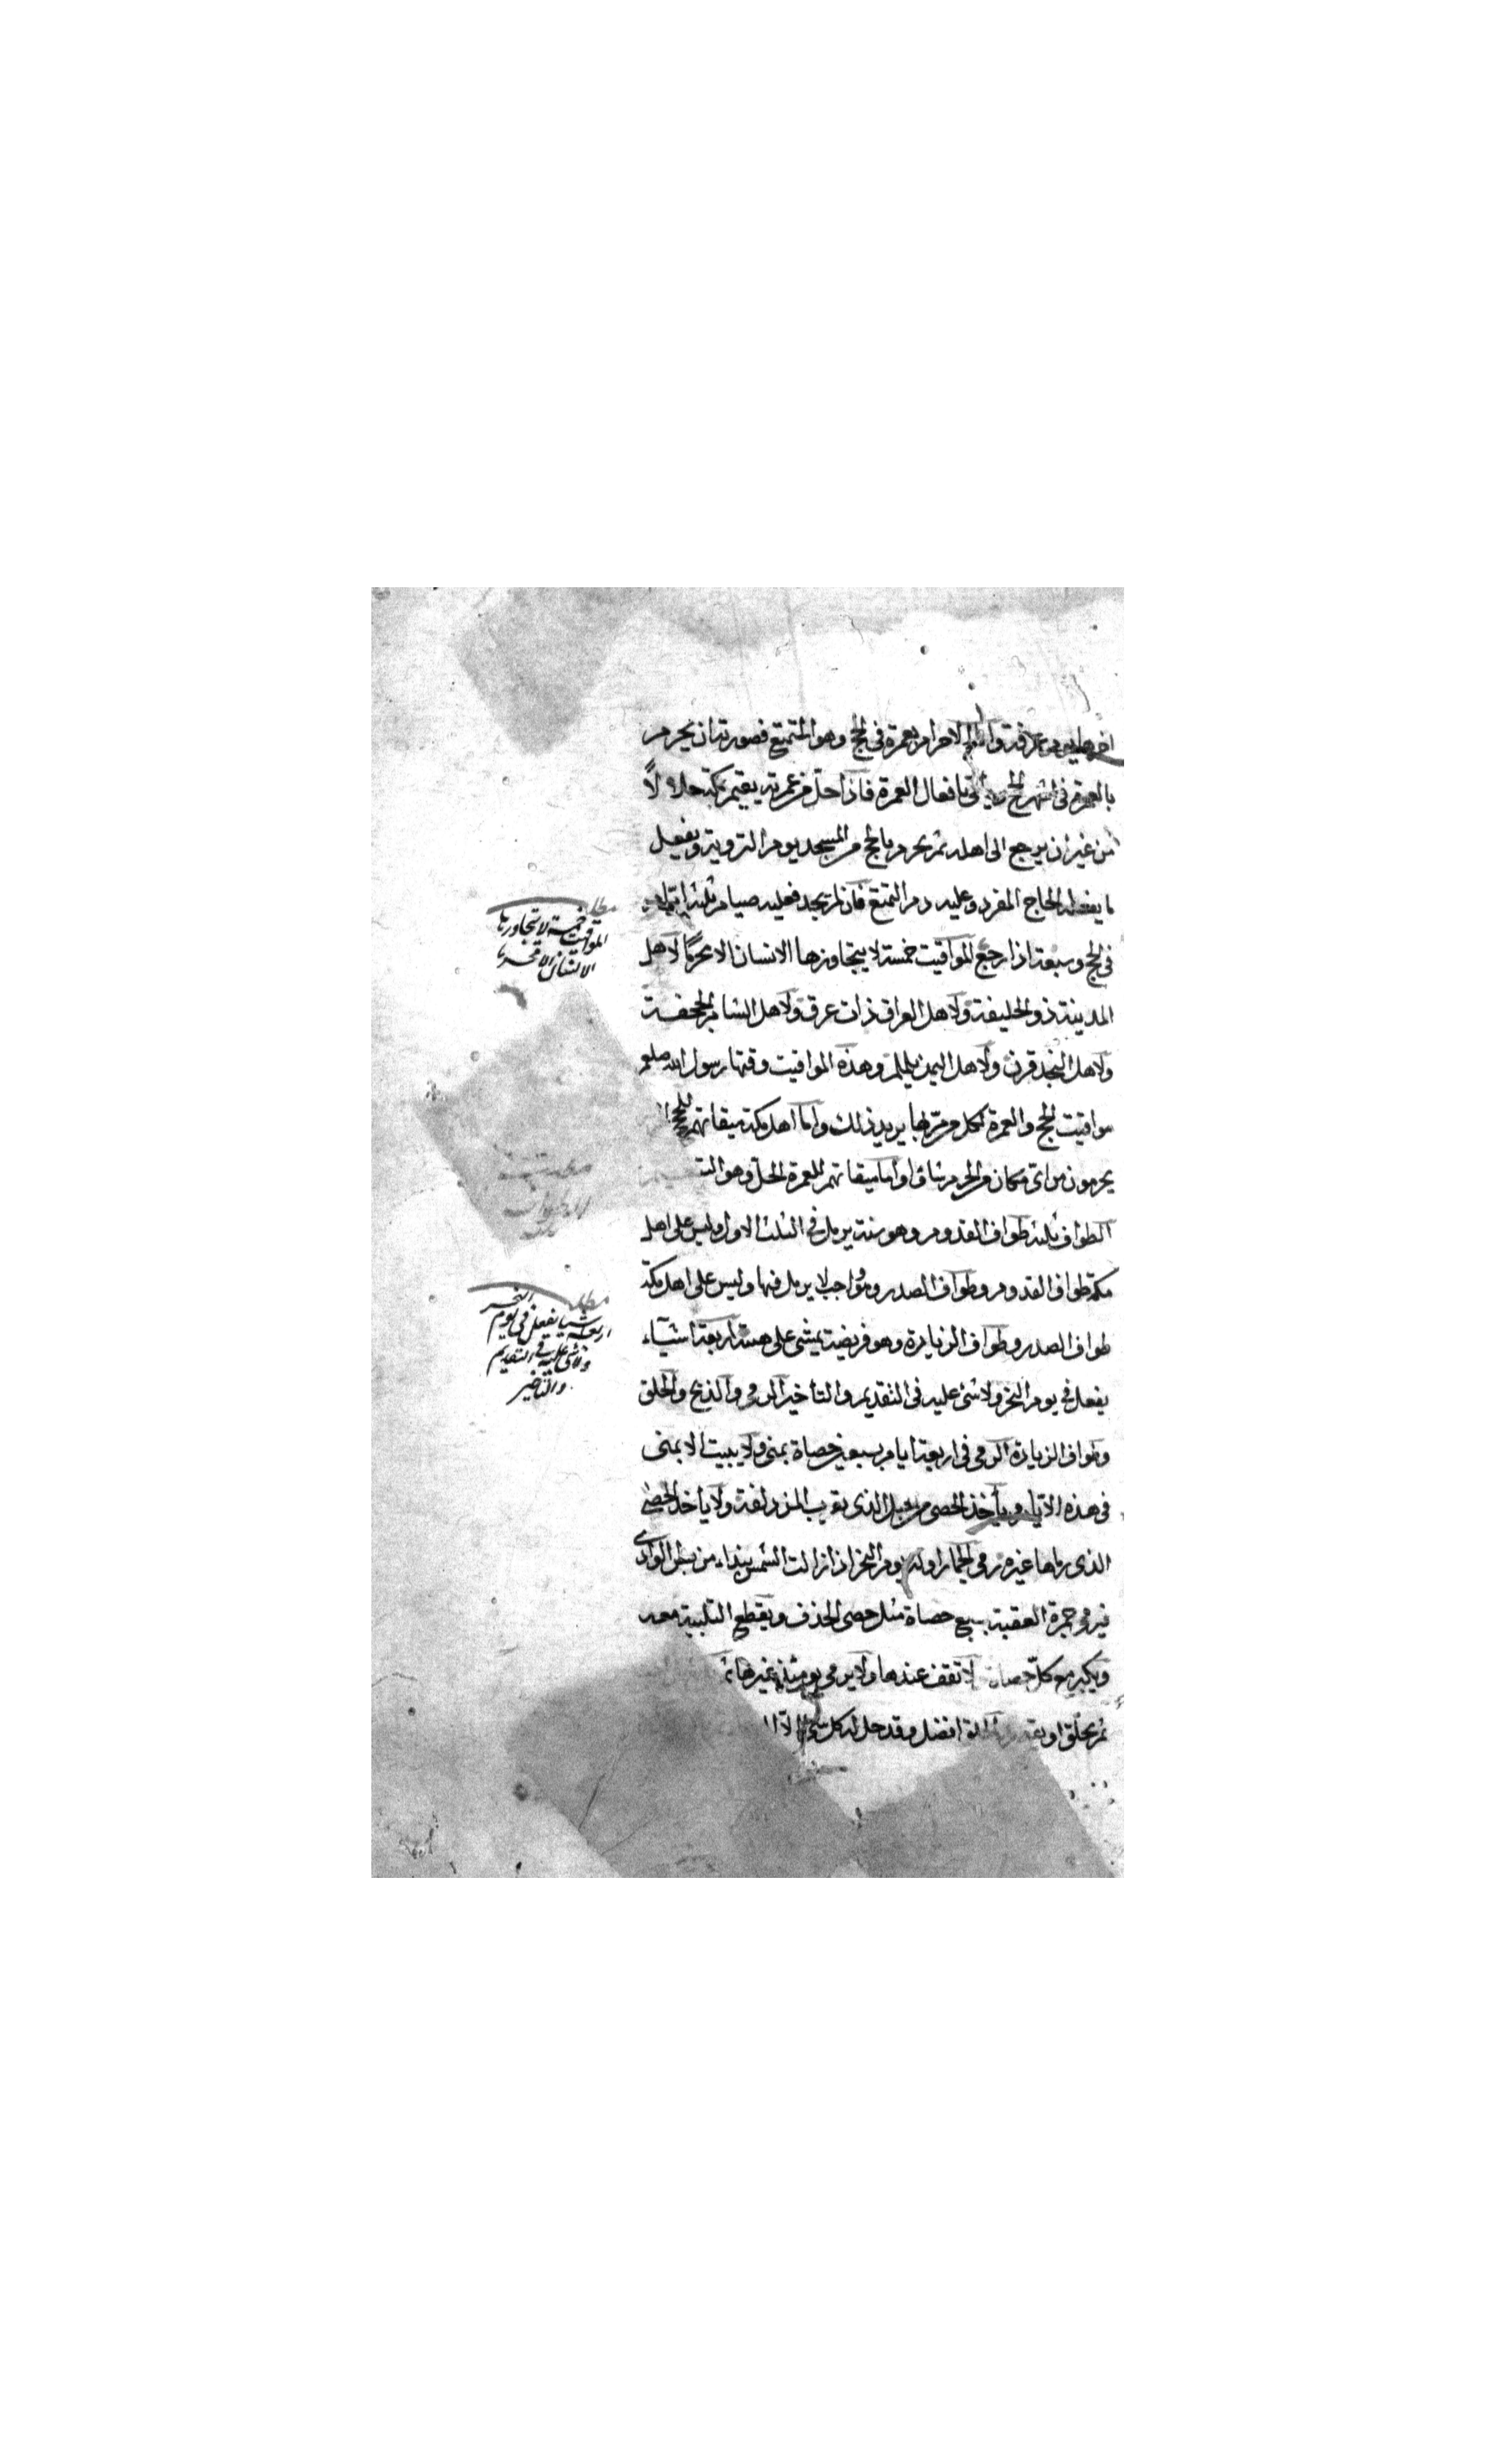 اخرها يوم عرفة والاحرام بعمرة في الحج وهو المتمتع فصورته ان يحرم
بالعمرة في اشهر الحج بافعال العمرة فاذا حل من عمرته يقيم بمكة حلالاً
من غير ان يرجع الى اهله ثم يحرم بالحج من المسجد يوم التروية ويفعل
ما يفعله الحاج المفرد وعليه دم التمتع فان لم يجد فعليه صيام ثلثة ايام
في الحج وسبعة اذا رجع المواقيت خمسة لا يتجاوزها الانسان الا محرمًا لاهل
المدينة ذو الحليفة ولاهل العراق ذات عرق ولاهل الشام الجحفة
ولاهل النجد قرن ولاهل اليمن يلملم وهذه المواقيت وقتها رسول الله صلعم
مواقيت الحج والعمرة لكل من مر بها يريد ذلك واما اهل مكة ميقاتهم للحج
يحرمون من اى مكان من الحرم شاؤا واما ميقاتهم للعمرة الحل وهو
الطواف ثلثة طواف القدوم وهو سنة يرمل في الثلث الاول وليس على اهل
مكة طواف القدوم وطواف الصدر وهو واجب لا يرمل فيها وليس على اهل مكة
طواف الصدر وطواف الزيارة وهو فريضة يمشى على هينته اربعة اشيآء
يفعل في يوم النحر ولا شئ عليه في التقديم والتأخير الرمى والذبح والحلق
وطواف الزيارة الرمى في اربعة ايام بسبعين حصاة بمنى ولا يبيت الا بمنى
في هذه الايام ويأخذ الحصى من جبل الذى بقرب المزدلفة ولا يأخذ الحصى
الذى رماها غيره رمى الجمار اوله يوم النحر اذا زالت الشمس يبتداء من بطن الوادى
فيرمى جمرة العقبة بسبع حصاة مثل حصى الخذف ويقطع التلبية معه
ويكبر مع كل حصاة لا تقف عندها ولا يرمى يومئذ غيرها
ثم يحلق او يقصر افضل وقد حل له كل شئ الا
مطلب
المواقيت خمسة لا يتجاوزها
الانسان الا محرما
مطلب
اربعة اشيا يفعل في يوم النحر
ولا شئ عليه في التقديم
والتاخير